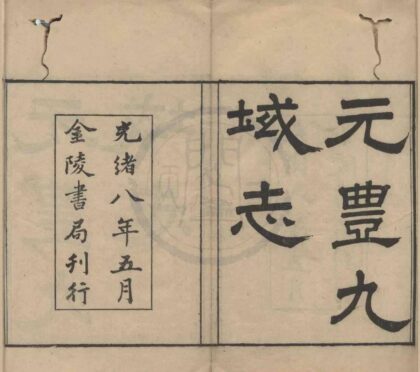 元豐九
域志
光緒八年五月
金陵書局刊行